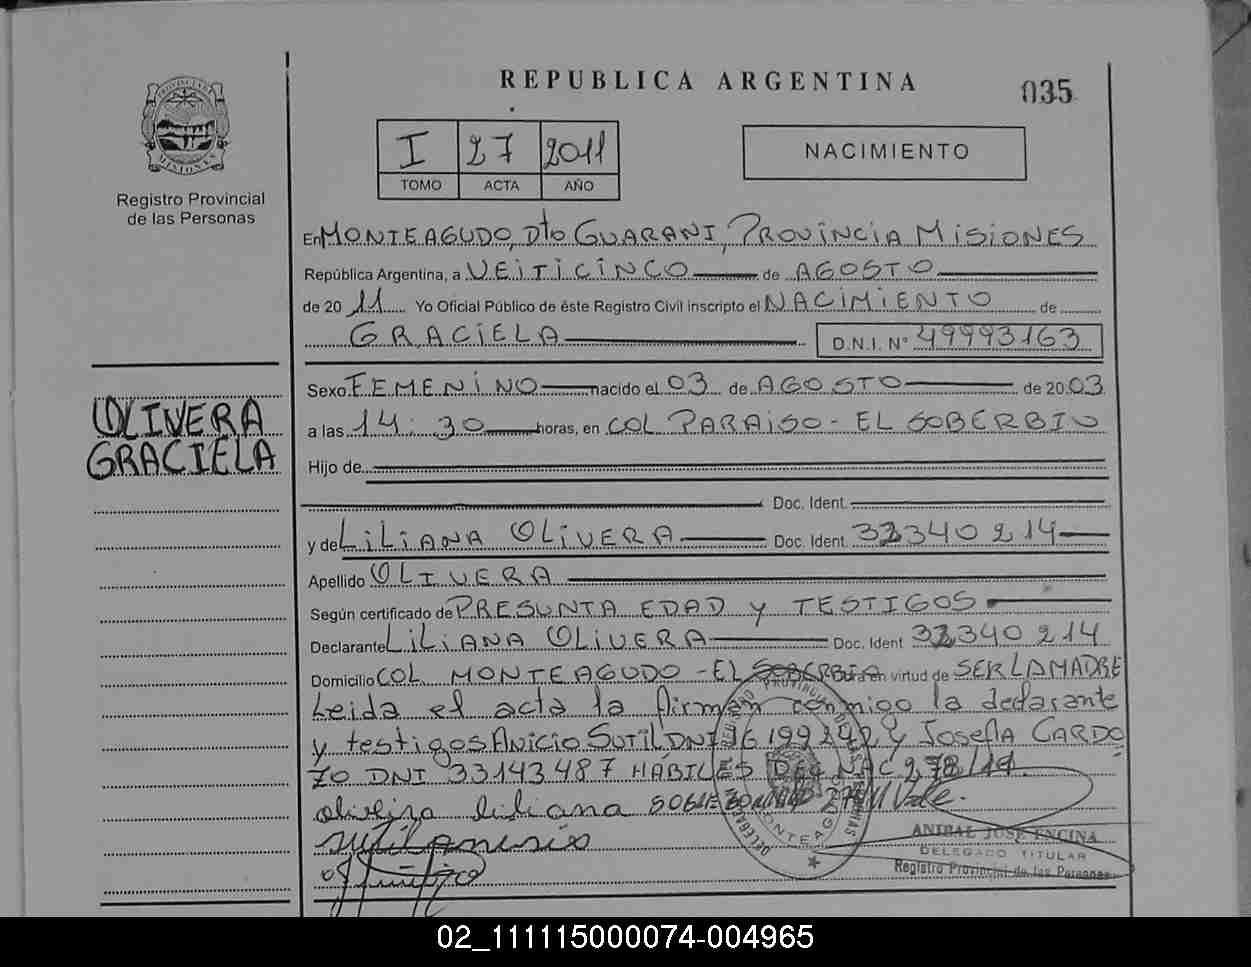 REPUBLICA ARGENTINA
035
PROVINCIA DE
MISIONES
Registro Provincial
de las Personas
I 27 2011
TOMO ACTA AÑO
NACIMIENTO
En MONTEAGUDO, Dto GUARANI, PROVINCIA MISIONES
República Argentina, a VEITICINCO de AGOSTO
de 20 11 Yo Oficial Público de éste Registro Civil inscripto el NACIMIENTO de
GRACIELA D.N.I. N° 49993163
Sexo FEMENINO nacido el 03 de AGOSTO de 20 03
OLIVERA
GRACIELA
a las 14:30 horas, en COL PARAISO - EL SOBERBIO
Hijo de
Doc. Ident.
y de LILIANA OLIVERA Doc. Ident. 32340214
Apellido OLIVERA
Según certificado de PRESUNTA EDAD y TESTIGOS
Declarante LILIANA OLIVERA Doc. Ident 32340214
Domicilio COL. MONTEAGUDO - EL en virtud de SER LA MADRE
Leida el acta la firman conmigo la declarante
y testigos ANICIO SUTIL DNI 16199242 y JOSEFIA CARDO
ZO DNI 33143487 HÁBILES DEC NAC 278/11.
oliveira liliana Vale.
ANIBAL JOSE ENCINA
DELEGADO TITULAR
Registro Provincial de las Personas
02_111115000074-004965